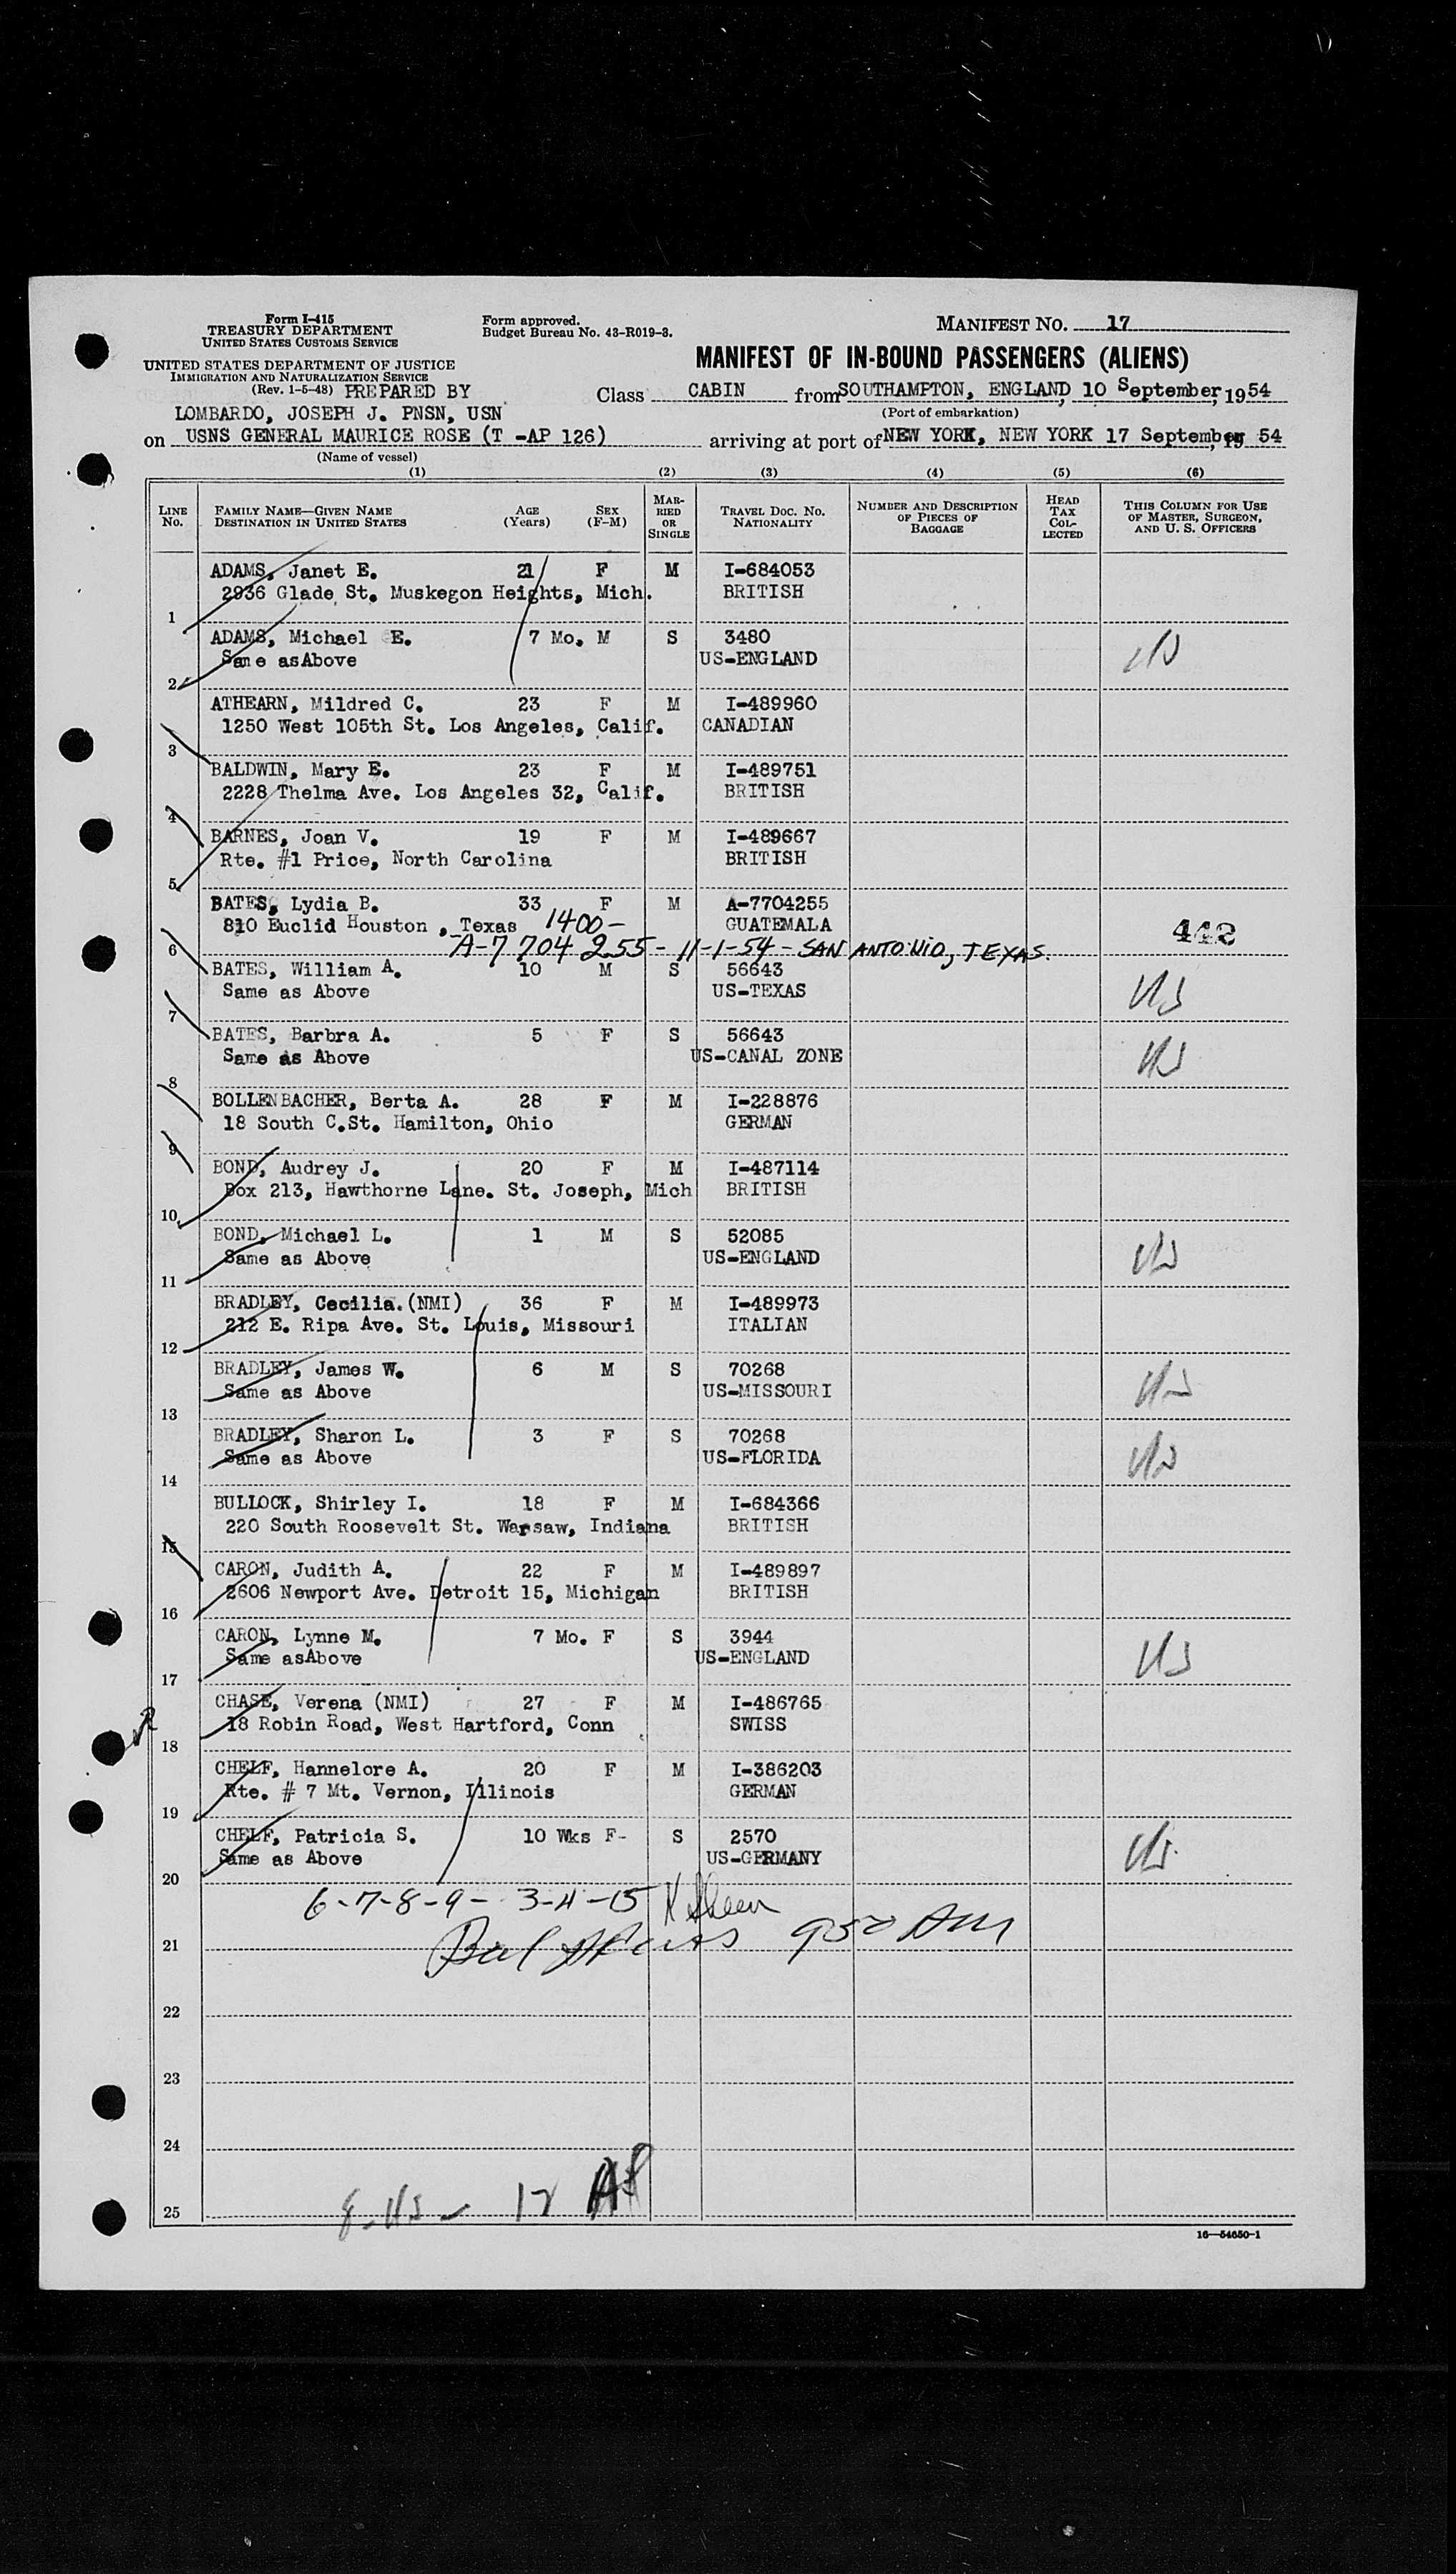 Form I-415
TREASURY DEPARTMENT
UNITED STATES CUSTOMS SERVICE
Form approved.
Budget Bureau No. 43-R019-3.
MANIFEST NO. 17
UNITED STATES DEPARTMENT OF JUSTICE
IMMIGRATION AND NATURALIZATION SERVICE
(Rev. 1-5-48) PREPARED BY
MANIFEST OF IN-BOUND PASSENGERS (ALIENS)
LOMBARDO, JOSEPH J. PNSN, USN
Class CABIN from SOUTHAMPTON, ENGLAND, 10 September, 1954
(Port of embarkation)
on USNS GENERAL MAURICE ROSE (T -AP 126) arriving at port of NEW YORK, NEW YORK 17 September, 19 54
(Name of vessel)
(1) (2) (3) (4) (5) (6)
LINE No. FAMILY NAME—GIVEN NAME DESTINATION IN UNITED STATES AGE (Years) SEX (F-M) MARRIED OR SINGLE TRAVEL DOC. NO. NATIONALITY NUMBER AND DESCRIPTION OF PIECES OF BAGGAGE HEAD TAX COLLECTED THIS COLUMN FOR USE OF MASTER, SURGEON, AND U. S. OFFICERS
ADAMS, Janet E. 21 F M I-684053
2936 Glade St. Muskegon Heights, Mich. BRITISH
1
ADAMS, Michael E. 7 Mo. M S 3480
Same asAbove US-ENGLAND US
2
ATHEARN, Mildred C. 23 F M I-489960
1250 West 105th St. Los Angeles, Calif. CANADIAN
3
BALDWIN, Mary E. 23 F M I-489751
2228 Thelma Ave. Los Angeles 32, Calif. BRITISH
4
BARNES, Joan V. 19 F M I-489667
Rte. #1 Price, North Carolina BRITISH
5
BATES, Lydia B. 33 F M A-7704255
810 Euclid Houston , Texas 1400- GUATEMALA 442
6 A-7 704 255 - 11-1-54 - SAN ANTONIO, TEXAS.
BATES, William A. 10 M S 56643
Same as Above US-TEXAS US
7
BATES, Barbra A. 5 F S 56643
Same as Above US-CANAL ZONE US
8
BOLLENBACHER, Berta A. 28 F M I-228876
18 South C.St. Hamilton, Ohio GERMAN
9
BOND, Audrey J. 20 F M I-487114
Box 213, Hawthorne Lane. St. Joseph, Mich BRITISH
10
BOND, Michael L. 1 M S 52085
Same as Above US-ENGLAND US
11
BRADLEY, Cecilia.(NMI) 36 F M I-489973
212 E. Ripa Ave. St. Louis, Missouri ITALIAN
12
BRADLEY, James W. 6 M S 70268
Same as Above US-MISSOURI US
13
BRADLEY, Sharon L. 3 F S 70268
Same as Above US-FLORIDA US
14
BULLOCK, Shirley I. 18 F M I-684366
220 South Roosevelt St. Warsaw, Indiana BRITISH
15
CARON, Judith A. 22 F M I-489897
2606 Newport Ave. Detroit 15, Michigan BRITISH
16
CARON, Lynne M. 7 Mo. F S 3944
Same asAbove US-ENGLAND US
17
CHASE, Verena (NMI) 27 F M I-486765
18 Robin Road, West Hartford, Conn SWISS
18
CHELF, Hannelore A. 20 F M I-386203
Rte. # 7 Mt. Vernon, Illinois GERMAN
19
CHELF, Patricia S. 10 Wks F- S 2570
Same as Above US-GERMANY US
20
6-7-8-9- 3-4-15
21 950 AM
22
23
24
8-US- 12 A
25
16—54650-1